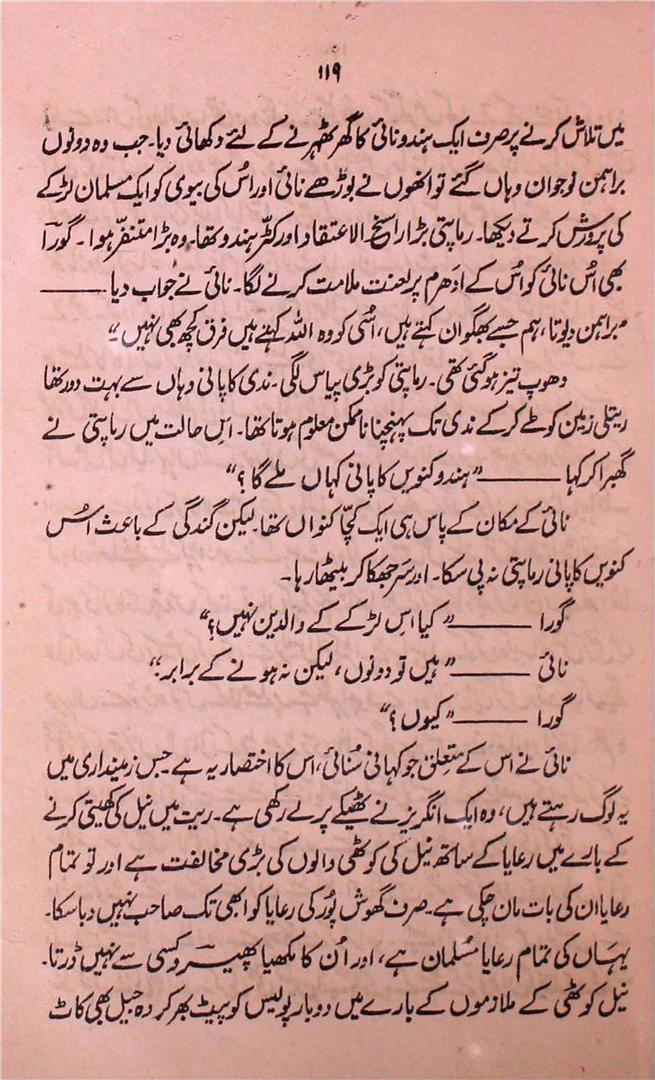 ۱۱۹
میں تلاش کرنے پر صرف ایک ہندو نائی کا گھر ٹھہرنے کے لئے دکھائی دیا۔ جب وہ دونوں
براہمن نوجوان وہاں گئے تو انھوں نے بوڑھے نائی اور اُس کی بیوی کو ایک مسلمان لڑکے
کی پرورش کرتے دیکھا۔ رماپتی بڑا راسخ الاعتقاد اور کٹّر ہندو تھا۔ وہ بڑا متنفّر ہوا۔ گورا
بھی اُس نائی کو اُس کے ادَھرم پر لعنت ملامت کرنے لگا۔ نائی نے جواب دیا ———
”براہمن دیوتا، ہم جسے بھگوان کہتے ہیں، اُسی کو وہ اللہ کہتے ہیں فرق کچھ بھی نہیں“
دھوپ تیز ہو گئی تھی۔ رماپتی کو بڑی پیاس لگی۔ ندی کا پانی وہاں سے بہت دور تھا
ریتلی زمین کو طے کر کے ندی تک پہنچنا ناممکن معلوم ہوتا تھا۔ اِس حالت میں رماپتی نے
گھبرا کر کہا ——— ”ہندو کنویں کا پانی کہاں ملے گا؟“
نائی کے مکان کے پاس ہی ایک کچّا کنواں تھا۔ لیکن گندگی کے باعث اُس
کنویں کا پانی رماپتی نہ پی سکا۔ اور سَر جھکا کر بیٹھا رہا۔
گورا ——— ”کیا اِس لڑکے کے والدین نہیں؟“
نائی ——— ”ہیں تو دونوں، لیکن نہ ہونے کے برابر۔“
گورا ——— ”کیوں؟“
نائی نے اس کے متعلق جو کہانی سُنائی، اس کا اختصار یہ ہے۔ جس زمینداری میں
یہ لوگ رہتے ہیں، وہ ایک انگریز نے ٹھیکے پر لے رکھی ہے۔ ریت میں نیل کی کھیتی کرنے
کے بارے میں رعایا کے ساتھ نیل کی کوٹھی والوں کی بڑی مخالفت ہے اور تو تمام
رعایا ان کی بات مان چکی ہے۔ صرف گھوش پُور کی رعایا کو ابھی تک صاحب نہیں دبا سکا۔
یہاں کی تمام رعایا مُسلمان ہے، اور اُن کا مُکھیا پھیرو کسی سے نہیں ڈرتا۔
نیل کوٹھی کے ملازموں کے بارے میں دو بار پولیس کو پیٹ بھر کر وہ جیل بھی کاٹ